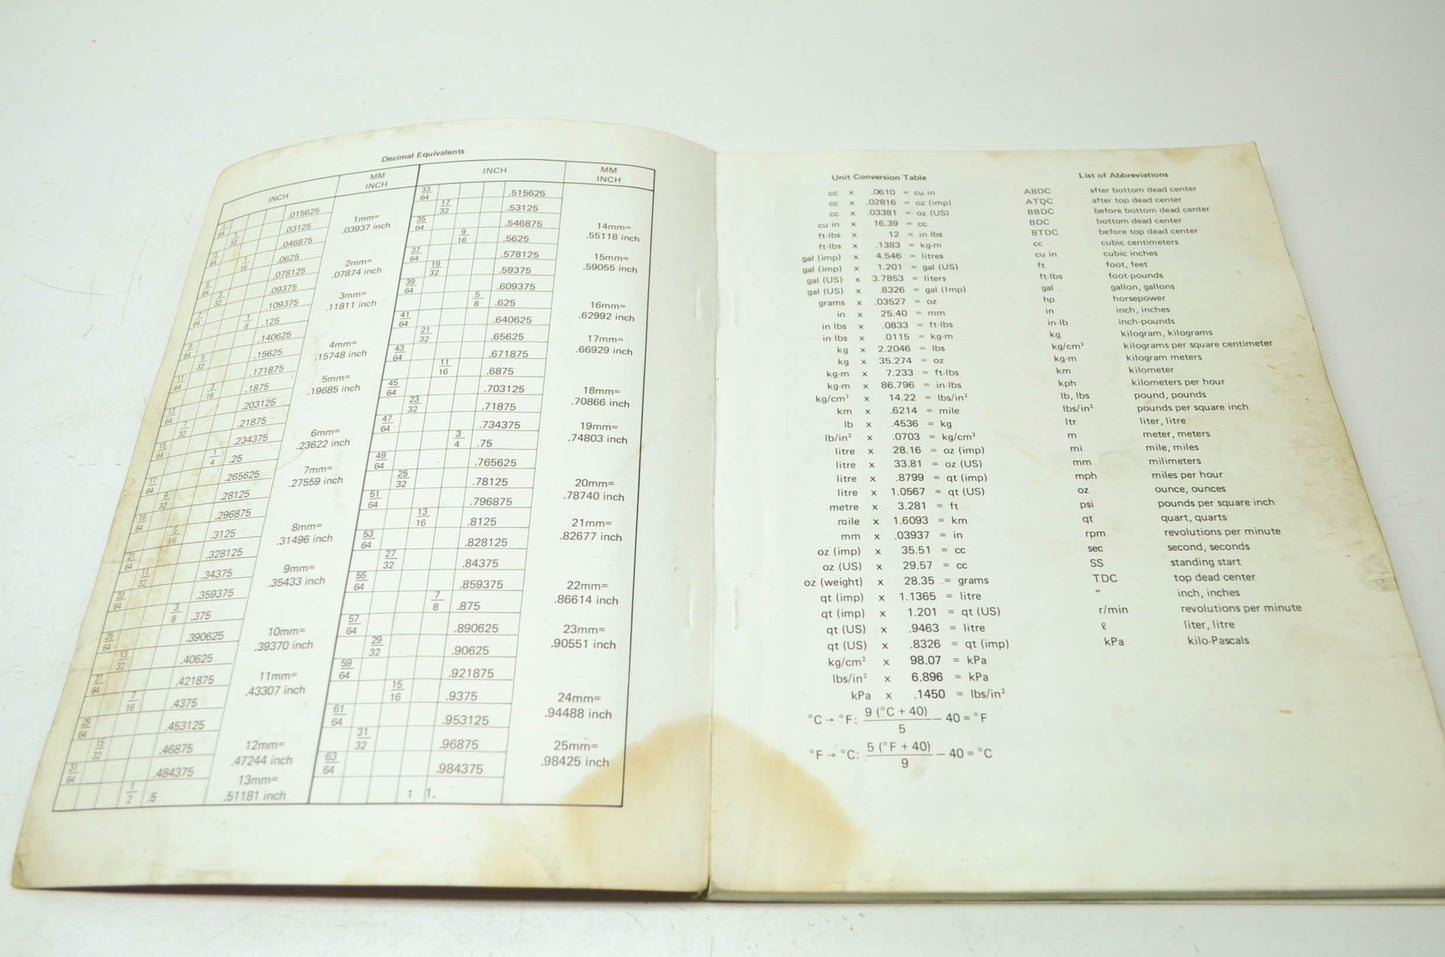 Decimal Equivalents
INCH
MM INCH
INCH
MM INCH
1/64 .015625
1/32 .03125
1mm= .03937 inch
3/64 .046875
1/16 .0625
5/64 .078125
2mm= .07874 inch
3/32 .09375
7/64 .109375
3mm= .11811 inch
1/8 .125
9/64 .140625
5/32 .15625
4mm= .15748 inch
11/64 .171875
3/16 .1875
5mm= .19685 inch
13/64 .203125
7/32 .21875
15/64 .234375
6mm= .23622 inch
1/4 .25
17/64 .265625
7mm= .27559 inch
9/32 .28125
19/64 .296875
5/16 .3125
8mm= .31496 inch
21/64 .328125
11/32 .34375
9mm= .35433 inch
23/64 .359375
3/8 .375
25/64 .390625
10mm= .39370 inch
13/32 .40625
27/64 .421875
11mm= .43307 inch
7/16 .4375
29/64 .453125
15/32 .46875
12mm= .47244 inch
31/64 .484375
1/2 .5
13mm= .51181 inch
33/64 .515625
17/32 .53125
35/64 .546875
14mm= .55118 inch
9/16 .5625
37/64 .578125
15mm= .59055 inch
19/32 .59375
39/64 .609375
5/8 .625
16mm= .62992 inch
41/64 .640625
21/32 .65625
17mm= .66929 inch
43/64 .671875
11/16 .6875
45/64 .703125
18mm= .70866 inch
23/32 .71875
47/64 .734375
19mm= .74803 inch
3/4 .75
49/64 .765625
25/32 .78125
20mm= .78740 inch
51/64 .796875
13/16 .8125
21mm= .82677 inch
53/64 .828125
27/32 .84375
55/64 .859375
22mm= .86614 inch
7/8 .875
57/64 .890625
23mm= .90551 inch
29/32 .90625
59/64 .921875
15/16 .9375
24mm= .94488 inch
61/64 .953125
31/32 .96875
25mm= .98425 inch
63/64 .984375
1 1.
Unit Conversion Table
cc x .0610 = cu in
cc x .02816 = oz (imp)
cc x .03381 = oz (US)
cu in x 16.39 = cc
ft-lbs x 12 = in lbs
ft-lbs x .1383 = kg-m
gal (imp) x 4.546 = litres
gal (imp) x 1.201 = gal (US)
gal (US) x 3.7853 = liters
gal (US) x .8326 = gal (Imp)
grams x .03527 = oz
in x 25.40 = mm
in lbs x .0833 = ft-lbs
in lbs x .0115 = kg-m
kg x 2.2046 = lbs
kg x 35.274 = oz
kg-m x 7.233 = ft-lbs
kg-m x 86.796 = in-lbs
kg/cm² x 14.22 = lbs/in²
km x .6214 = mile
lb x .4536 = kg
lb/in² x .0703 = kg/cm²
litre x 28.16 = oz (imp)
litre x 33.81 = oz (US)
litre x .8799 = qt (imp)
litre x 1.0567 = qt (US)
metre x 3.281 = ft
mile x 1.6093 = km
mm x .03937 = in
oz (imp) x 35.51 = cc
oz (US) x 29.57 = cc
oz (weight) x 28.35 = grams
qt (imp) x 1.1365 = litre
qt (imp) x 1.201 = qt (US)
qt (US) x .9463 = litre
qt (US) x .8326 = qt (imp)
kg/cm² x 98.07 = kPa
lbs/in² x 6.896 = kPa
kPa x .1450 = lbs/in²
°C → °F: 9 (°C + 40)/5 − 40 = °F
°F → °C: 5 (°F + 40)/9 − 40 = °C
List of Abbreviations
ABDC after bottom dead center
ATDC after top dead center
BBDC before bottom dead center
BDC bottom dead center
BTDC before top dead center
cc cubic centimeters
cu in cubic inches
ft foot, feet
ft-lbs foot-pounds
gal gallon, gallons
hp horsepower
in inch, inches
in-lb inch-pounds
kg kilogram, kilograms
kg/cm² kilograms per square centimeter
kg-m kilogram meters
km kilometer
kph kilometers per hour
lb, lbs pound, pounds
lbs/in² pounds per square inch
ltr liter, litre
m meter, meters
mi mile, miles
mm milimeters
mph miles per hour
oz ounce, ounces
psi pounds per square inch
qt quart, quarts
rpm revolutions per minute
sec second, seconds
SS standing start
TDC top dead center
" inch, inches
r/min revolutions per minute
ℓ liter, litre
kPa kilo-Pascals